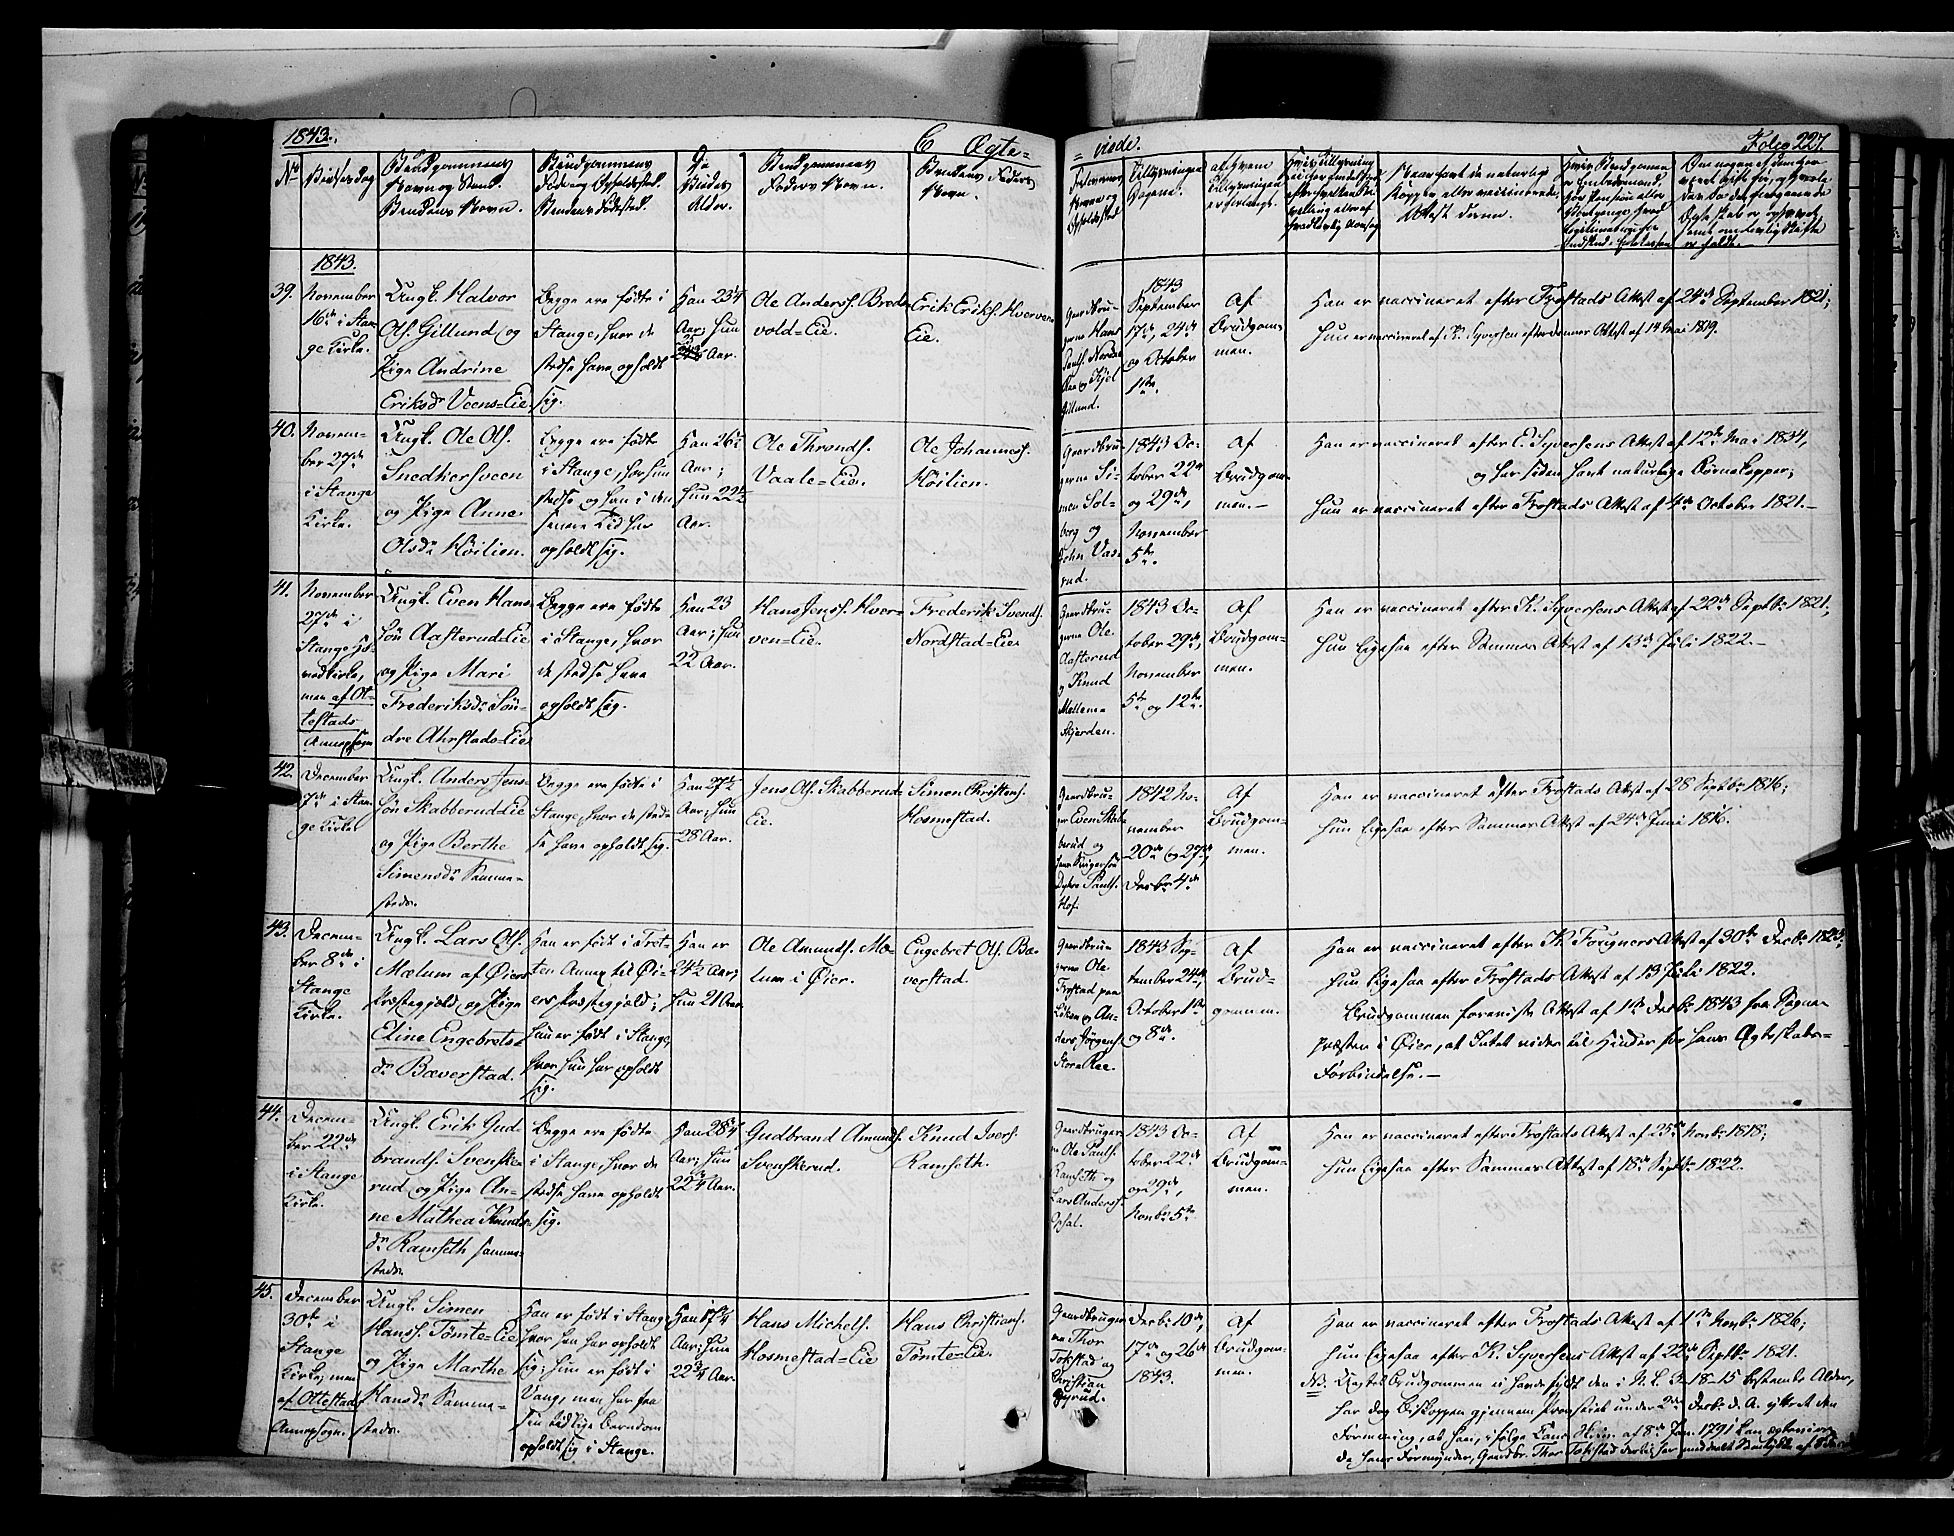 1843.
C Ægte=
= viede.
Folio 227.
No
Vielsesdag
Brudgommens
Navn og Stand.
Brudens Navn.
Brudgommens
Føde og Opholdssted.
Brudens Fødested.
De
Viedes
Alder.
Brudgommens
Faders Navn.
Brudens Faders
Navn.
Forlovernes
Navne og
Opholdssted
Tillysnings
Dagene.
af hvem
Tillysningen
er forlangt.
Naar havt de naturlige
Kopper eller vaccinerede.
Attest derom.
1843.
39.
November
16de i Stan-
ge Kirke.
Ungk. Halvor
Ols. Gillund, og
Pige Andrine
Eriksdr Veens=Eie.
Begge ere fødte i
Stange, hvor de
stedse have opholdt
sig.
Han 23¼
Aar; hun
Aar.
Ole Anders. Brede-
vold=Eie.
Erik Eriks. Hverven
Eie.
Gaardbru-
gerne Hans
Pauls. Nordre
Ree og Kjel
Gillund.
1843
September
17de, 24de
og October
1ste.
Af
Brudgom-
men.
Han er vaccineret efter Frostads Attest af 24de September 1821;
Hun er vaccineret af K. Syversen efter dennes Attest af 14 Mai 1819.
40.
Novem-
ber 27de
i Stange
Kirke.
Ungk. Ole Ols.
Snedkersveen
og Pige Anne
Olsdr Høilien.
Begge ere fødte
i Stange, hvor hun
stedse og han i den
senere Tid har
opholdt sig.
Han 26½
Aar;
hun 22½
Aar.
Ole Thronds.
Vaale=Eie.
Ole Johanness.
Høilien.
Gaardbru-
gerne Si-
men Sol-
berg og
John Vaa-
rud.
1843 Oc-
tober 22de
og 29de,
November
5te.
Af
Brudgom-
men.-
Han er vaccineret efter E. Syversens Attest af 12te Mai 1834,
og har siden havt naturlige Børnekopper;
Hun er vaccineret efter Frostads Attest af 4de October 1821.-
41.
November
27de i
Stange Ho-
vedkirke,
men af Ot-
testads
Annexsogn
Ungk. Even Hans-
søn Aasterud=Eie
og Pige Mari
Frederiksdr Søn-
dre Ahrstads=Eie.
Begge ere fødte
i Stange, hvor
de stedse have
opholdt sig.
Han 23
Aar; hun
22 Aar.
Hans Jenss. Hver-
ven=Eie.
Frederik Svends.
Nordstad=Eie.
Gaardbru-
gerne Ole
Aasterud
og Knud
Mellem-
Skjerden.
1843 Oc-
tober 29de,
November
5te og 12te.
Af
Brudgom-
men.
Han er vaccineret efter K. Syversens Attest af 22de Septbr 1821,
Hun ligesaa efter Sammes Attest af 13de Juli 1822.-
42.
December
7de i Stan-
ge Kirke
Ungk. Anders Jens-
søn Skabberud=Eie
og Pige Berthe
Simensdr Samme-
steds.
Begge ere fødte i
Stange, hvor de sted-
se have opholdt sig.
Han 27½
Aar; hun
28 Aar.
Jens Ols. Skabberud=
Eie.
Simen Christians.
Hosmestad.
Gaardbru-
ger Even Skab-
berud og
Pauls.
Hof.
1842 No-
vember
20de og 27de,
Decbr 4de
Af
Brudgom-
men.
Han er vaccineret efter Frostads Attest af 28 Septbr 1816;
Hun ligesaa efter Sammes Attest af 24de Juni 1816.
43.
Decem-
ber 8de i
Stange
Kirke.
Ungk. Lars Ols.
Mælum af Øiers
Præstegjeld og Pige
Eline Engebrets-
dr Bæverstad.
Han er født i Tret-
ten Annex til Øi-
ers Præstegjeld;
hun er født i Stange,
hvor hun har opholdt
sig.
Han er
24½ Aar;
hun 21 Aar.
Ole Amunds. Mæ-
lum i Øier.
Engebret Ols. Bæ-
verstad.
Gaardbru-
gerne Ole
Frostad paa
Løken og An-
ders Jørgens.
Store Ree.
1843 Sep-
tember 24de,
October 1ste
og 8de.
Af
Brud-
gommen.
Han er vaccineret efter K. Fougners Attest af 30te Decbr 1823.
Hun ligesaa efter Frostads Attest af 13 Juli 1822.
Brudgommen foreviste Attest af 1ste Decbr 1843 fra Sogne-
præsten i Øier, at Intet vides til Hinder for hans Ægteskabs-
Forbindelse.-
44.
Decem-
ber 22de
i Stange
Kirke.
Ungk. Erik Gud-
brands. Svenske-
rud og Pige An-
ne Mathea Knuds-
dr Ramseth samme-
steds.
Begge ere fødte
i Stange, hvor de
stedse have opholdt
sig.
Han 28¾
Aar; hun
22¾ Aar.
Gudbrand Amunds.
Svenskerud.
Knud Ivers.
Ramseth.
Gaardbruger-
ne Ole Pauls.
Ramseth og
Lars Anderss.
Opsal.
1843 Oc-
tober 22de
og 29de,
Novbr 5te
Af
Brudgom-
men.
Han er vaccineret efter Frostads Attest af 25de Novbr 1818;
Hun ligesaa efter Sammes Attest af 18de Septbr 1822.
45.
December
30te i
Stange
Kirke, men
af Ottestads
Annexsogn.
Ungk. Simen
Hanss. Tømte=Eie
og Pige Marthe
Hansdr Samme-
steds.
Han er født i Stange
hvor han har opholdt
sig; hun er født i
Vang, men har fra
sin tidlige Barndom
opholdt sig i Stange.
Han 17¾
Aar; hun
22¾ Aar.
Hans Michels.
Hosmestad=Eie
Hans Christians.
Tømte=Eie.
Gaardbruger-
ne Thor
Tokstad og
Christian
Gyrud.
Decbr 10de,
17de og 26de
1843.
Af
Brudgom-
men.
Han er vaccineret efter Frostads Attest af 1ste Novbr 1826;
Hun ligesaa efter K. Syversens Attest af 22de Septbr 1821.
NB. Uagtet Brudgommen ei havde fyldt den i N. L. 3-18-15 bestemte Alder,
har dog Biskoppen gjennem Provstiet under 2den Decbr d. A. yttret den
Formening, at han, ifølge Canc. Skriv. af 8de Jan. 1791 kan
da hans Formynder, Gaardbr. Thor Tokstad dertil har meddelt Samtykke